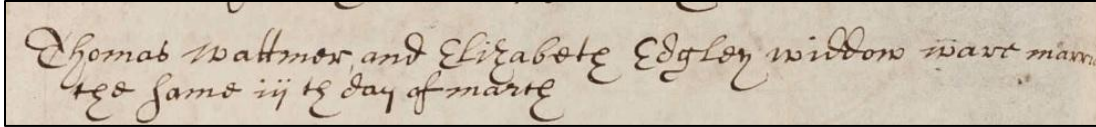 Thomas Wattmer and Elizabeth Edgley widdow ware marri
the same iij th day of march